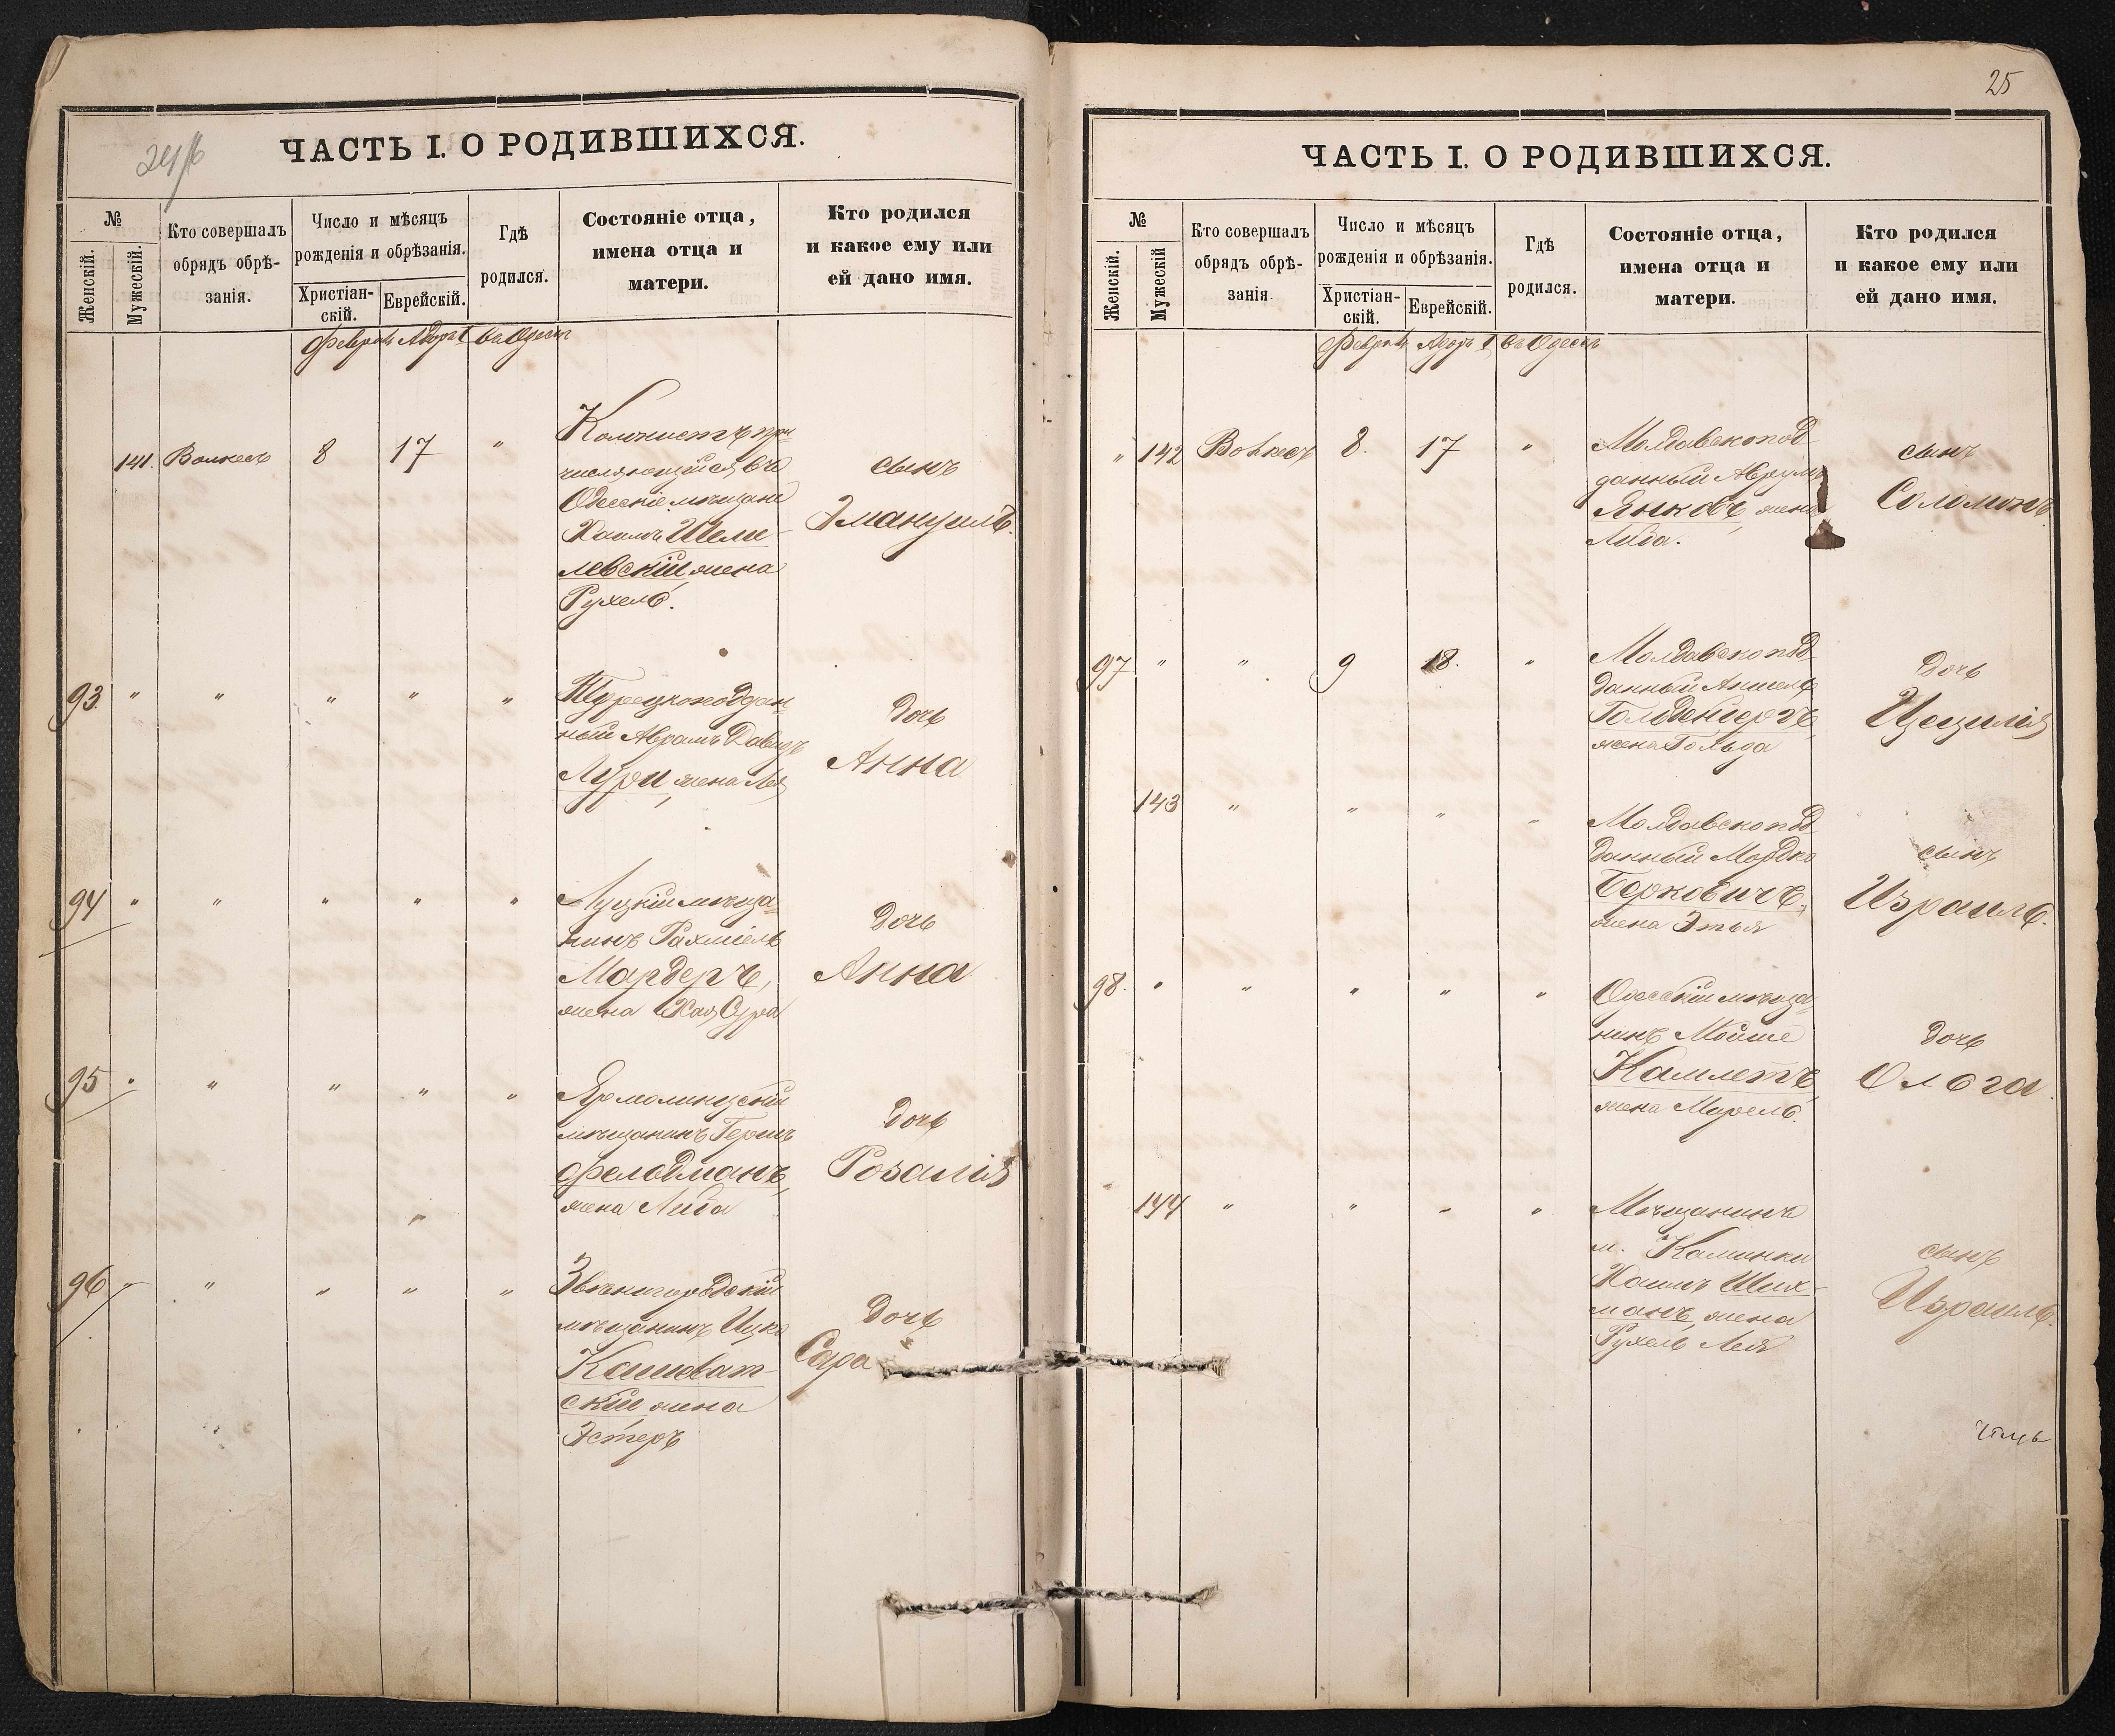 24/б
ЧАСТЬ I. О РОДИВШИХСЯ.
№
Женскій.
Мужескій.
Кто совершалъ
обрядъ обрѣ-
занія.
Число и мѣсяцъ
рожденія и обрѣзанія.
Христіан-
скій.
Еврейскій.
Гдѣ
родился.
Состояніе отца,
имена отца и
матери.
Кто родился
и какое ему или
ей дано имя.
141. 8 17 "
Колонистъ при
числяющійся въ
Одесскіе мѣщане
Хаимъ Шели-
левскій жена
Рухель.
сынъ
Эмануилъ.
93. " " " " "
Турецкоподдан-
ный Аврамъ Давидъ
Лури, жена Лея
дочь
Анна
94 " " " " "
Луцкій мѣща-
нинъ Рахміель
Мардеръ,
жена Хая Сура
дочь
Анна
95 " " " " "
Ярмолинцскій
мѣщанинъ Гершъ
Фельдманъ,
жена Либа
дочь
Розалія
96 " " " " "
Звѣнигородскій
мѣщанинъ Ицко
Кашеват-
скій жена
Эстеръ
дочь
Сара
25
ЧАСТЬ I. О РОДИВШИХСЯ.
№
Женскій.
Мужескій
Кто совершалъ
обрядъ обрѣ-
занія
Число и мѣсяцъ
рожденія и обрѣзанія.
Христіан-
скій.
Еврейскій.
Гдѣ
родился.
Состояніе отца,
имена отца и
матери.
Кто родился
и какое ему или
ей дано имя.
" 142 8. 17 "
Молдавскопод-
данный Аврумъ
Янковъ, жена
Либа.
сынъ
Соломонъ
97 " " 9 18. "
Молдавскопод-
данный Аншель
Гольденбергъ,
жена Гольда
дочь
Цецилія
143 " " " "
Молдавскопод-
данный Мордко
Берковичъ,
жена Этья
сынъ
Израиль.
98. " " " " "
Одесскій мѣща-
нинъ Мойше
Камлетъ,
жена Мирель.
дочь
Ольга
144 " " " "
Мѣщанинъ
м. Калинки
Хаимъ Ших-
манъ, жена
Рухель Лея
сынъ
Израиль.